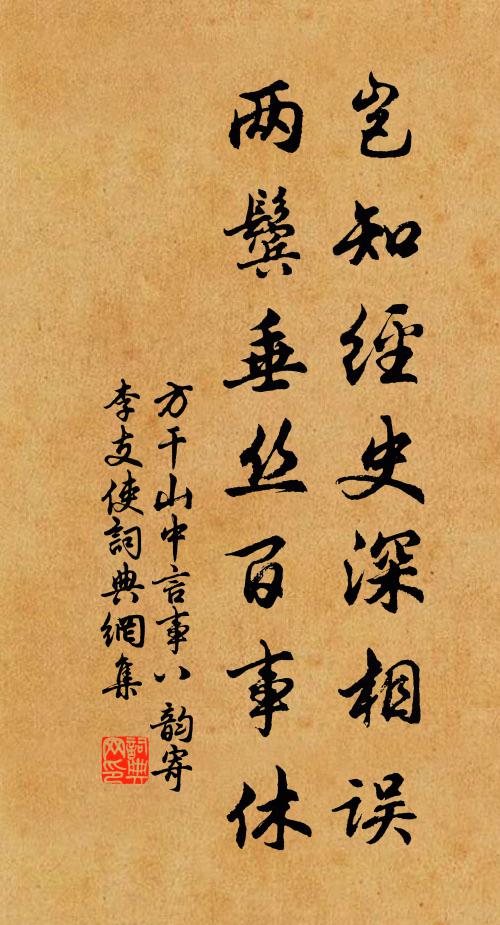 岂知經史深相误
两鬓垂丝百事休
方干山中言事八韵寄
李支使詞典網集
詞典
网印